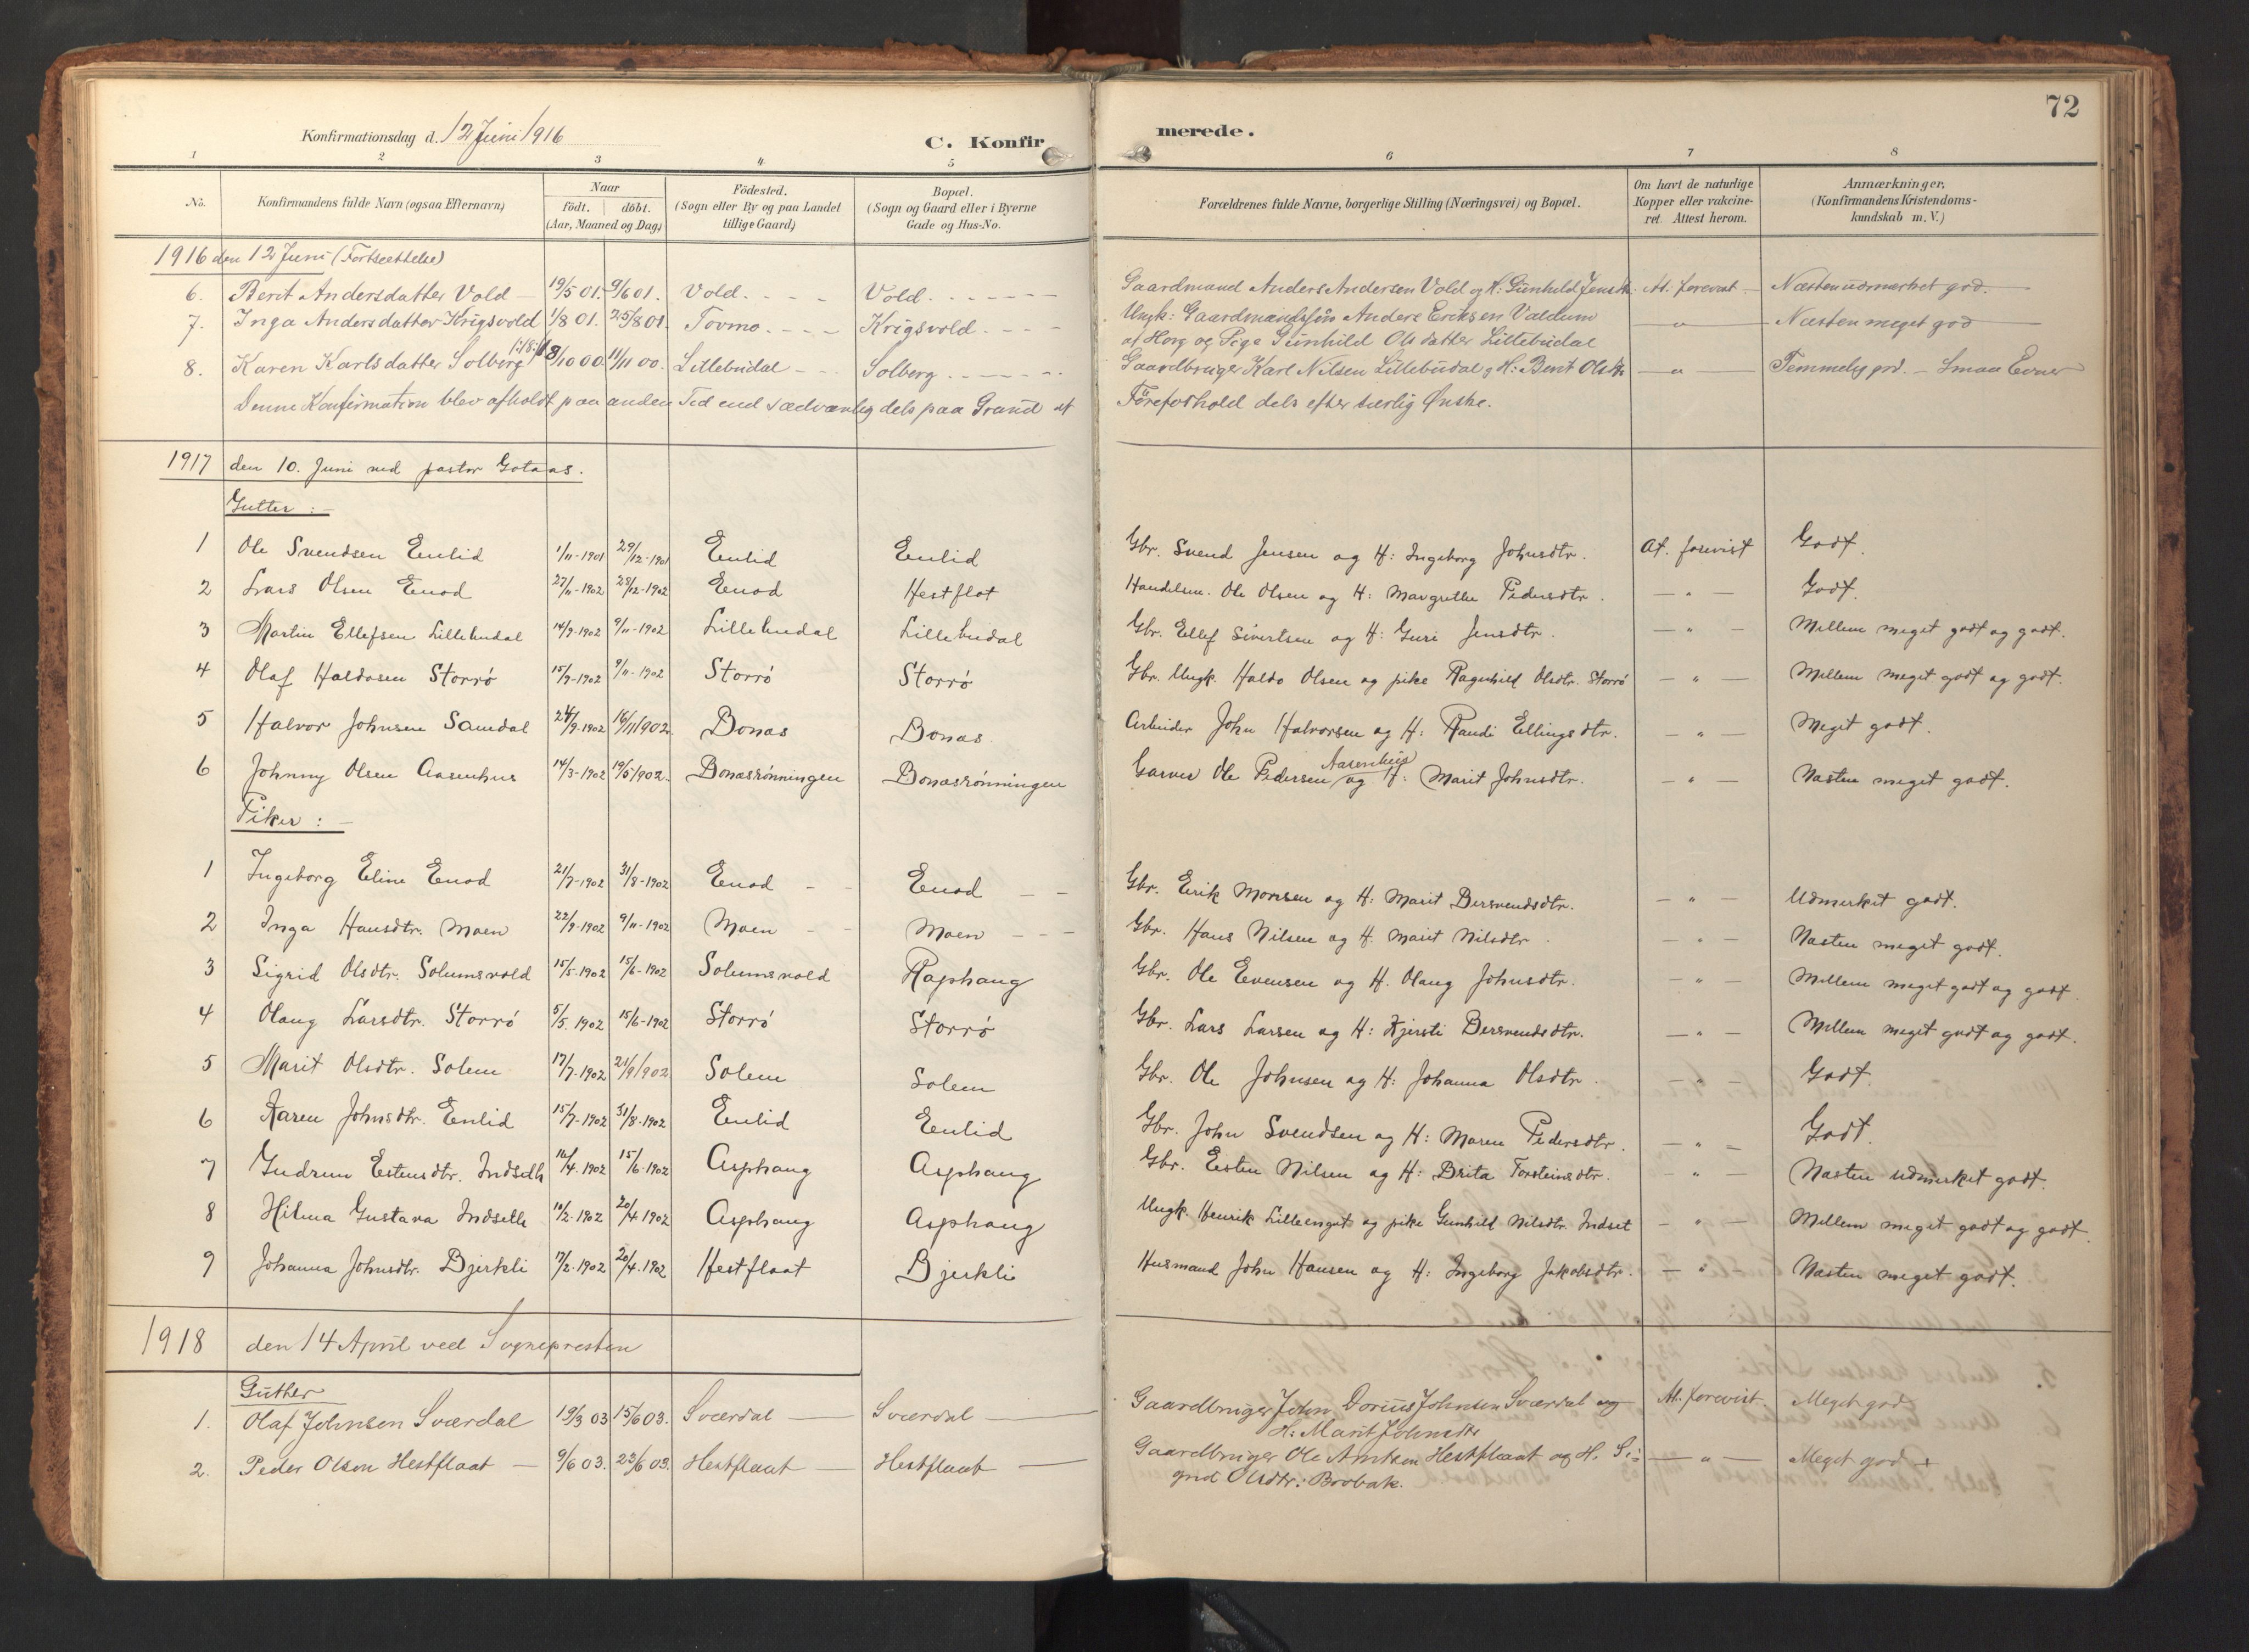 72
Konfirmationsdag d. 12 Juni 1916
C. Konfirmerede.
1 2 3 4 5 6 7 8
No. Konfirmandens fulde Navn (ogsaa Efternavn) Naar födt. döbt. (Aar, Maaned og Dag) Födested. (Sogn eller By og paa Landet tillige Gaard) Bopæl. (Sogn og Gaard eller i Byerne Gade og Hus-No. Forældrenes fulde Navne, borgerlige Stilling (Næringsvei) og Bopæl. Om havt de naturlige Kopper eller vakcineret. Attest herom. Anmærkninger, (Konfirmandens Kristendomskundskab m. V.)
1916 den 12 Juni (Fortsættelse)
6. Berit Andersdatter Vold 19/5 01. 9/6 01. Vold. Vold. Gaardmand Anders Andersen Vold og H: Gunhild At. forevist Næsten udmærket god.
7. Inga Andersdatter Krigsvold 1/8 01. 25/8 01. Tovmo. Krigsvold. Ungk: Gaardmandssøn Anders Eriksen Valdum — " — Næsten meget god
af Horg og Pige Gunhild Olsdatter Littebudal
8. Karen Karlsdatter Solberg 8/10 00. 11/11 00. Littebudal Solberg Gaardbruger Karl Nilsen Littebudal og H: Berit — " — Temmelig god. – Smaa Evner
Denne Konfirmation blev afholdt paa anden Tid end sædvanlig dels paa Grund af Føreforhold dels efter særlig Ønske.
1917 den 10. Juni ved pastor Gotaas.
Gutter :–
1 Ole Svendsen Enlid 1/11-1901 29/12-1901 Enlid Enlid Gbr. Svend Jensen og H: Ingeborg Johnsdtr. At. forevist Godt.
2 Lars Olsen Enod 27/11-1902 28/12-1902 Enod Hestflot Handelsm. Ole Olsen og H: Margrethe Pedersdtr. — " — Godt.
3 Martin Ellefsen Lillebudal 14/9-1902 9/11-1902 Lillebudal Lillebudal Gbr. Ellef Sivertsen og H: Guri Jensdtr. — " — Mellem meget godt og godt.
4 Olaf Haldosen Storrø 15/9-1902 9/11-1902 Storrø Storrø Gbr. Ungk. Haldo Olsen og pike Ragnhild Olsdtr. Storrø — " — Mellem meget godt og godt.
5 Halvor Johnsen Samdal 24/9-1902 16/11 1902. Bonas Bonas Arbeider John Halvorsen og H: Randi Ellingsdtr. — " — Meget godt.
6 Johnny Olsen Aasenhus 14/3-1902 19/5 1902. Bonasrønningen Bonasrønningen Garver Ole Pedersen Aasenhus og H: Marit Johnsdtr. — " — Næsten meget godt.
Piker :–
1 Ingeborg Eline Enod 21/7-1902 31/8-1902 Enod Enod Gbr. Erik Monsen og H: Marit Bersvendsdtr. — " — Udmerket godt.
2 Inga Hansdtr. Moen 22/9-1902 9/11-1902 Moen Moen Gbr. Hans Nilsen og H. Marit Nilsdtr. — " — Næsten meget godt.
3 Sigrid Olsdtr. Solumsvold 15/5-1902 15/6-1902 Solumsvold Raphaug Gbr. Ole Evensen og H. Olaug Johnsdtr. — " — Mellem meget godt og godt.
4 Olaug Larsdtr. Storrø 5/5. 1902 15/6-1902 Storrø Storrø Gbr. Lars Larsen og H: Kjersti Bersvendsdtr. — " — Mellem meget godt og godt.
5 Marit Olsdtr. Solem 17/7-1902 21/9 1902 Solem Solem Gbr. Ole Johnsen og H: Johanna Olsdtr. — " — Godt.
6 Karen Johnsdtr. Enlid 15/7-1902 31/8-1902 Enlid Enlid Gbr. John Svendsen og H: Maren Pedersdtr. — " — Godt.
7 Gudrun Estensdtr. Indseth 16/4. 1902 15/6-1902 Asphaug Asphaug Gbr. Esten Nilsen og H: Brita Torsteinsdtr. — " — Næsten udmerket godt.
8 Hilma Gustava Indseth 10/2-1902 20/4 1902 Asphaug Asphaug Ungk. Henrik Lilleenget og pike Gunhild Nilsdtr. Indset — " — Mellem meget godt og godt.
9 Johanna Johnsdtr. Bjerkli 17/2-1902 20/4 1902 Hestflaat Bjerkli Husmand John Hansen og H: Ingeborg Jakobsdtr. — " — Næsten meget godt.
1918 den 14 April ved Sognepresten
Gutter
1. Olaf Johnsen Sværdal 19/3 03 15/6 03. Sværdal Sværdal Gaardbruger John Dorius Johnsen Sværdal og At. forevist. Meget god
H: Marit Johnsdtr
2. Peder Olsen Hestflaat 9/6 03. 23/6 03. Hestflaat Hestflaat Gaardbruger Ole Arntsen Hestflaat og H. Si- — " — Meget god +
grid Olsdtr: Brobak.